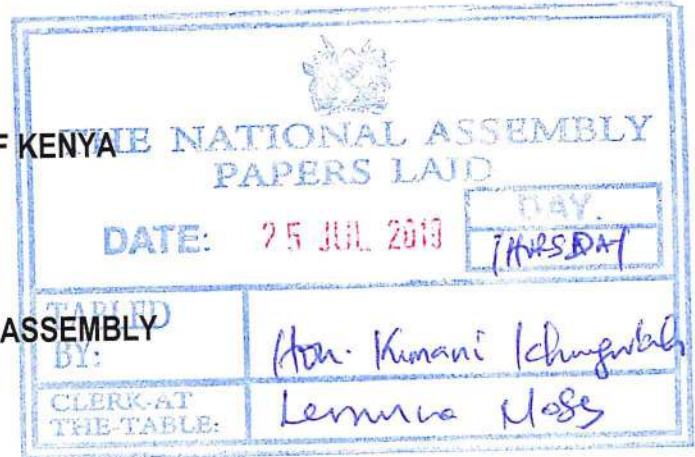 F KENYA
THE NATIONAL ASSEMBLY
PAPERS LAID
DATE: 25 JUL 2019
DAY.
THURSDAY
ASSEMBLY
TABLED
BY:
Hon. Kimani
CLERK-AT
THE-TABLE: